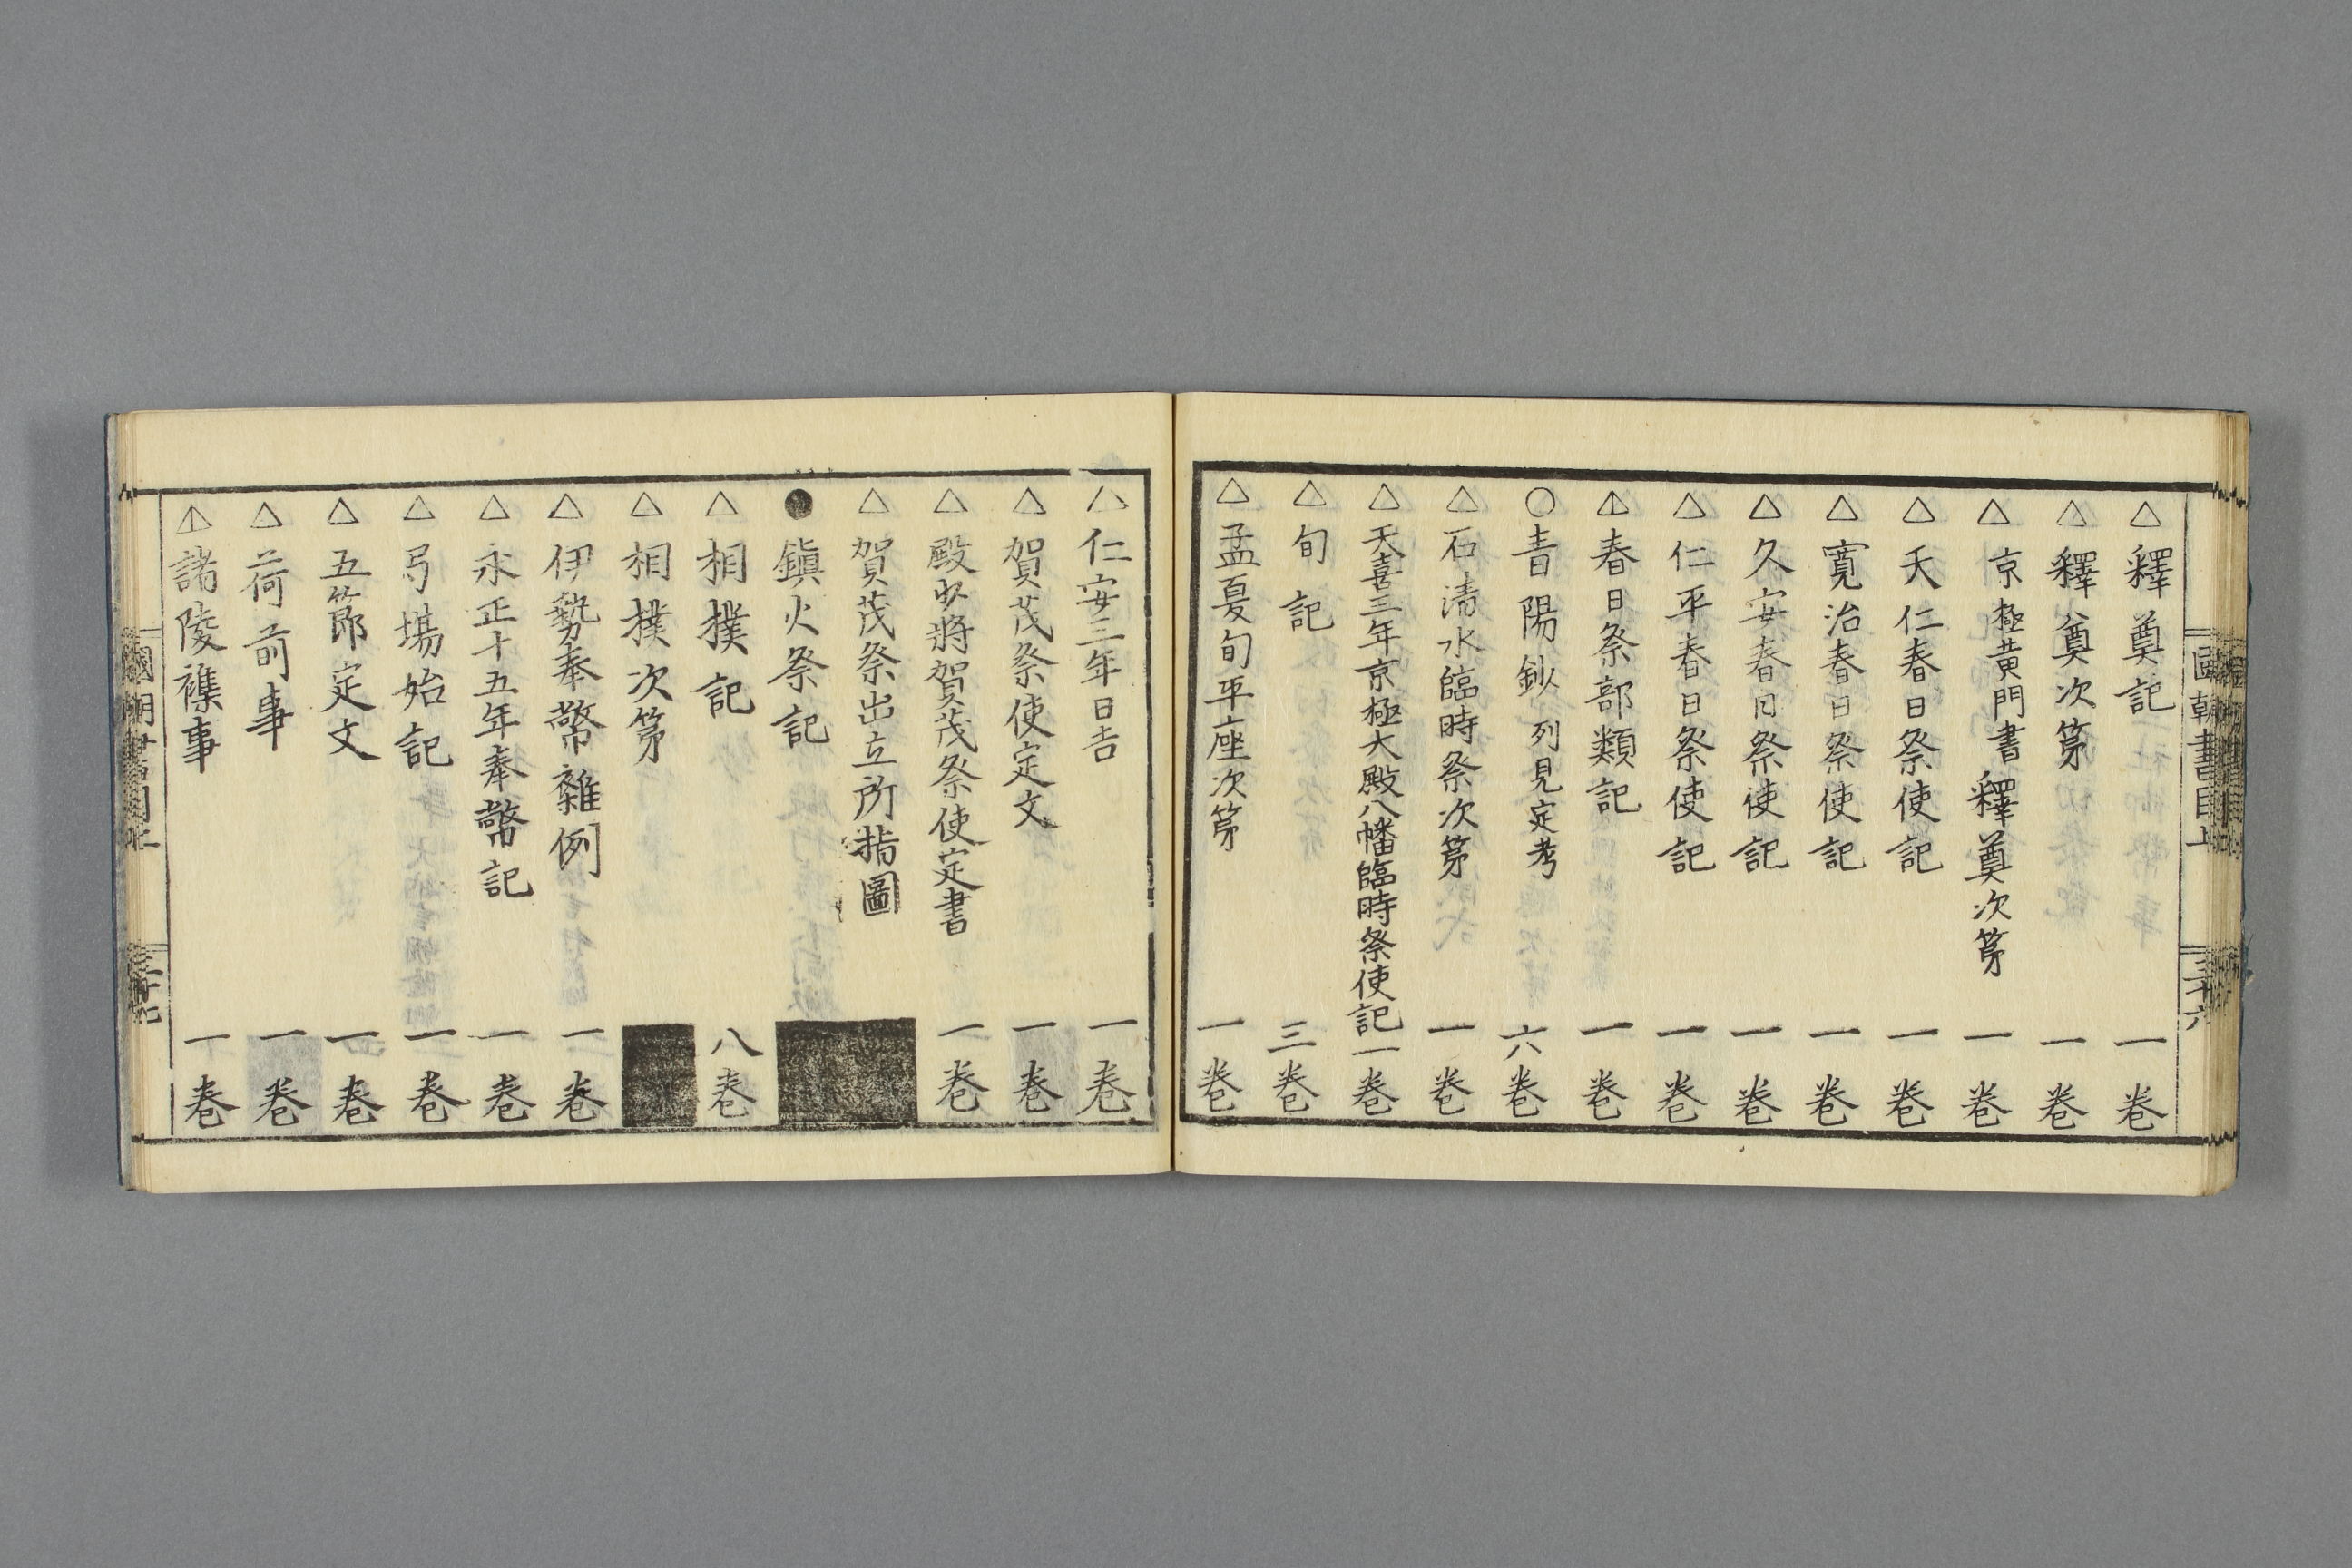 △釋奠記 一巻
△釋奠次第 一巻
△京極黄門書釋奠次第 一巻
△天仁春日祭使記 一巻
△寛治春日祭使記 一巻
△久安春日祭使記 一巻
△仁平春日祭使記 一巻
△春日祭部類記 一巻
○青陽鈔 列見定考 六巻
△石清水臨時祭次第 一巻
△天喜三年京極大殿八幡臨時祭使記 一巻
△旬記 三巻
△孟夏旬平座次第 一巻
國朝書目上 三十六
△仁安三年日吉 一巻
△賀茂祭使定文 一巻
△殿少將賀茂祭使定書 一巻
△賀茂祭出立所指圖
●鎭火祭記
△相撲記 八巻
△相撲次第
△伊勢奉幣雜例 一巻
△永正十五年奉幣記 一巻
△弓場始記 一巻
△五節定文 一巻
△荷前事 一巻
△諸陵襍事 一巻